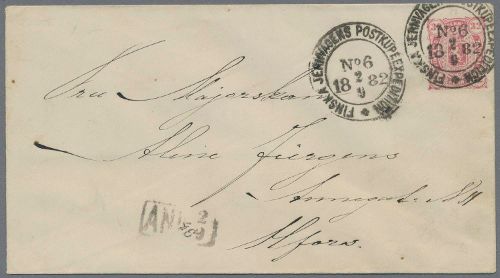 FINSKA JERNVÄGENS POSTKUPÉEXPEDITION
No 6
2
18 82
9
FINSKA JERNVÄGENS POSTKUPÉEXPEDITION
No 6
2
18 82
9
Fru Majorskan
Aline Jürgens
Annegat. N
Hfors.
ANK 2
9